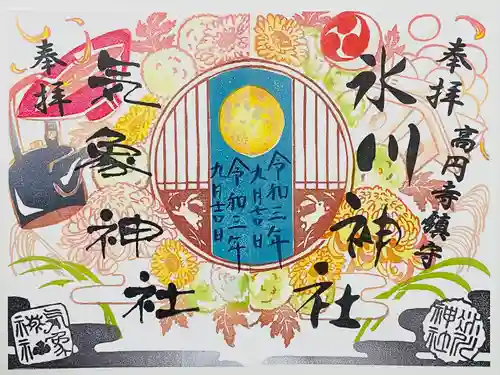 奉拝
高円寺鎮守
氷川神社
令和三年
九月吉日
令和三年
九月吉日
奉拝
気象神社
氷川神社
気象神社